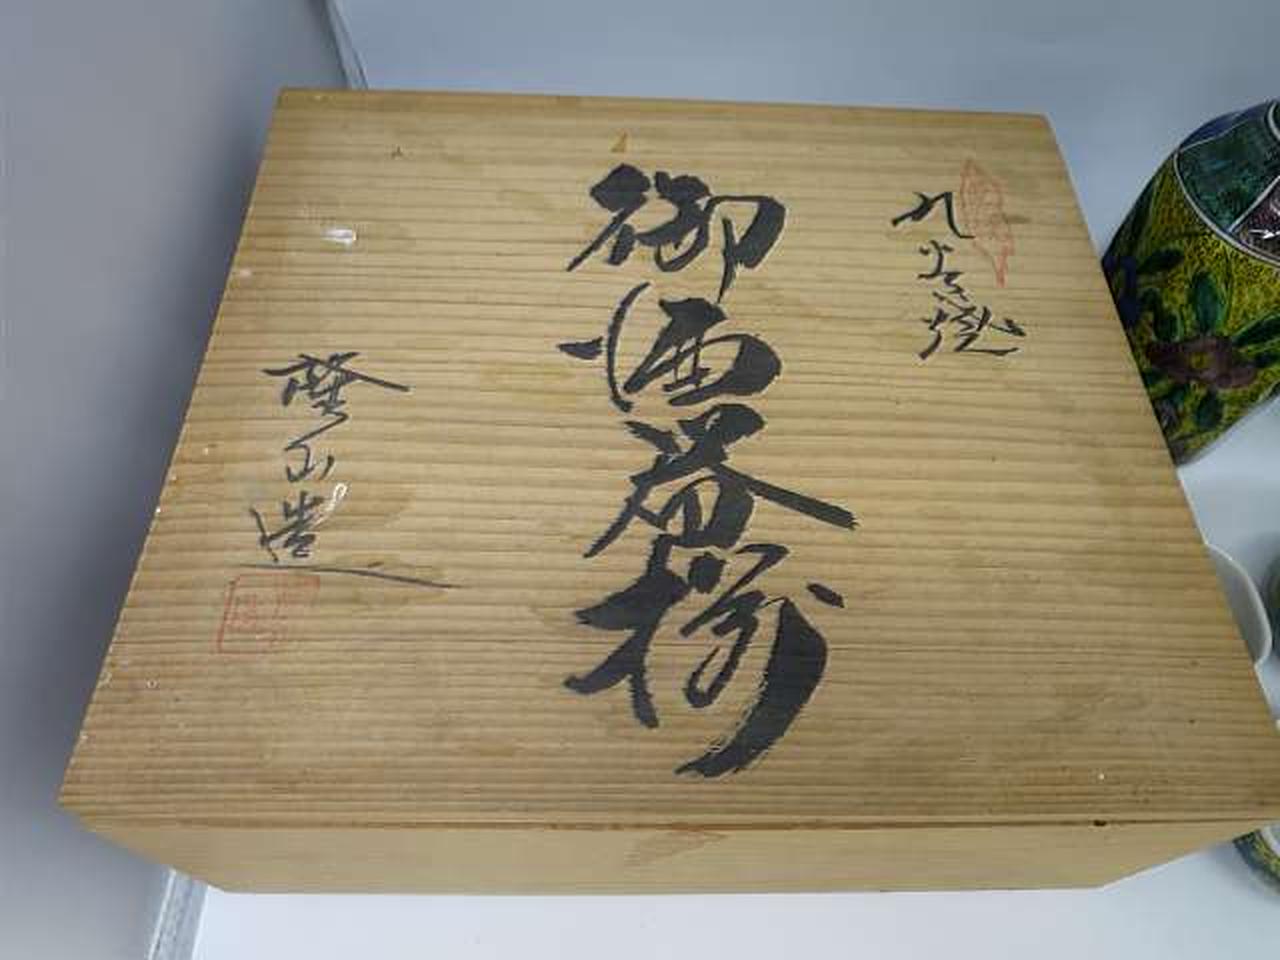 九谷焼
御酒器揃
山造